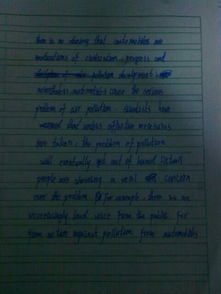 there is no denying that automobiles are
automations of civilization, progress and
pollution development
nevertheless automobiles cause the serious
problem of air pollution. Scientists have
that unless effective measures
are taken, the problem of pollution
will eventually get out of hand. Certain
people are showing a real concern
over the problem. For example, there is an
increasingly loud voice from the public for
action against pollution from automobiles